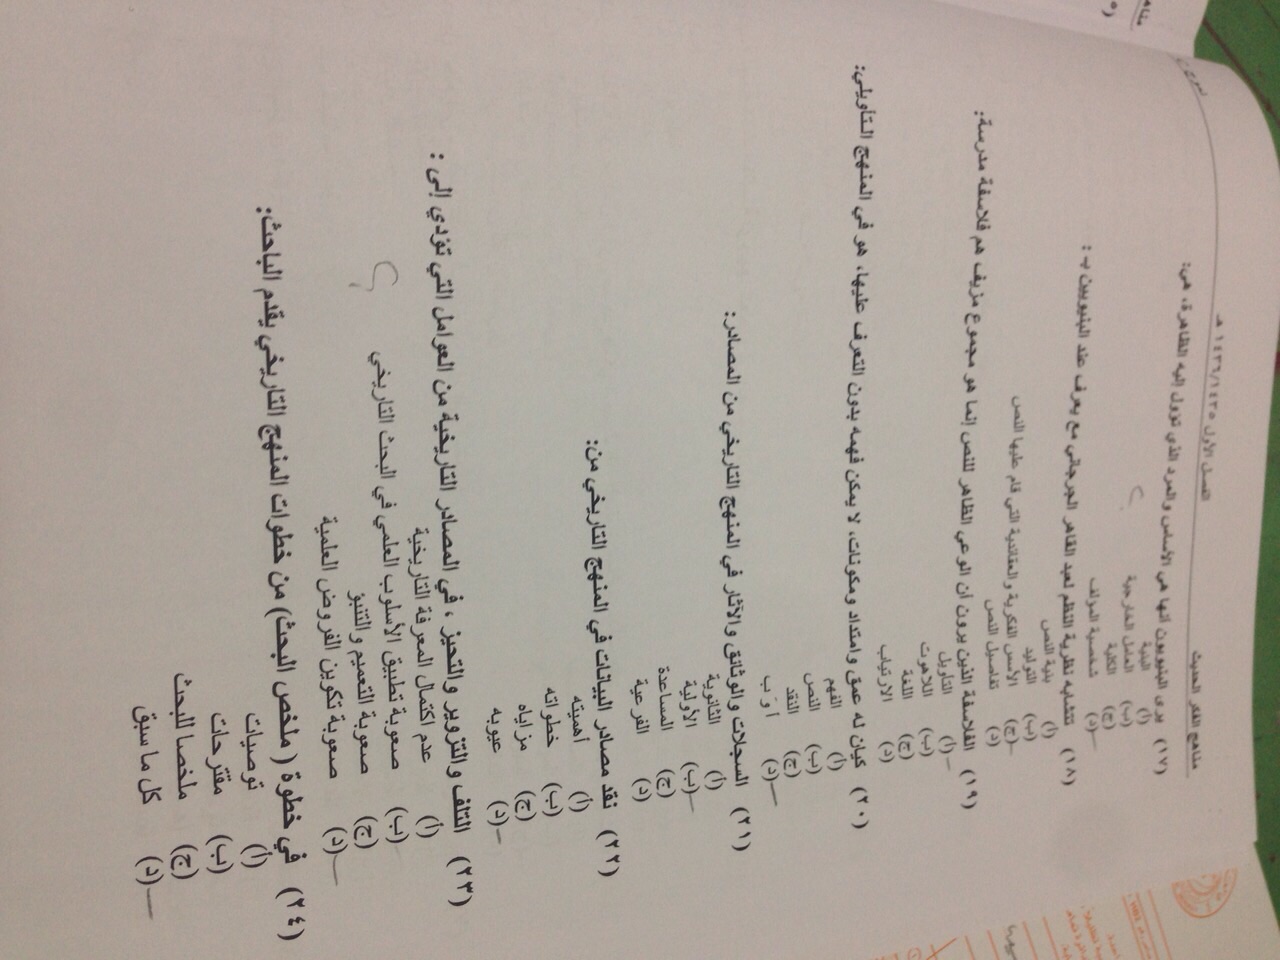 مناهج الفكر الحديث
الفصل الأول ١٤٣٦/١٤٣٥ هـ
(١٧) يرى البنيويون أنها هي الأساس والمرد الذي تؤول إليه الظاهرة، هي:
(أ) البنية
(ب) العامل الخارجية
(ج) الكلية
(د) شخصية المؤلف
(١٨) تتشابه نظرية النظم لعبد القاهر الجرجاني مع يعرف عند البنيويين بـ :
(أ) بنية النص
(ب) التوليد
(ج) الأسس الفكرية والعقائدية التي قام عليها النص
(د) تفاصيل النص
(١٩) الفلاسفة الذين يرون أن الوعي الظاهر للنص إنما هو مجموع مزيف هم فلاسفة مدرسة:
(أ) التأويل
(ب) اللاهوت
(ج) اللغة
(د) الارتياب
(٢٠) كيان له عمق وامتداد ومكونات، لا يمكن فهمه بدون التعرف عليها، هو في المنهج التأويلي:
(أ) الفهم
(ب) النص
(ج) النقد
(د) أ و ب
(٢١) السجلات والوثائق والآثار في المنهج التاريخي من المصادر:
(أ) الثانوية
(ب) الأولية
(ج) المساعدة
(د) الفرعية
(٢٢) نقد مصادر البيانات في المنهج التاريخي من:
(أ) أهميته
(ب) خطواته
(ج) مزاياه
(د) عيوبه
(٢٣) التلف والتزوير والتحيز ، في المصادر التاريخية من العوامل التي تؤدي إلى :
(أ) عدم اكتمال المعرفة التاريخية
(ب) صعوبة تطبيق الأسلوب العلمي في البحث التاريخي
(ج) صعوبة التعميم والتنبؤ
(د) صعوبة تكوين الفروض العلمية
(٢٤) في خطوة ( ملخص البحث) من خطوات المنهج التاريخي يقدم الباحث:
(أ) توصيات
(ب) مقترحات
(ج) ملخصا للبحث
(د) كل ما سبق